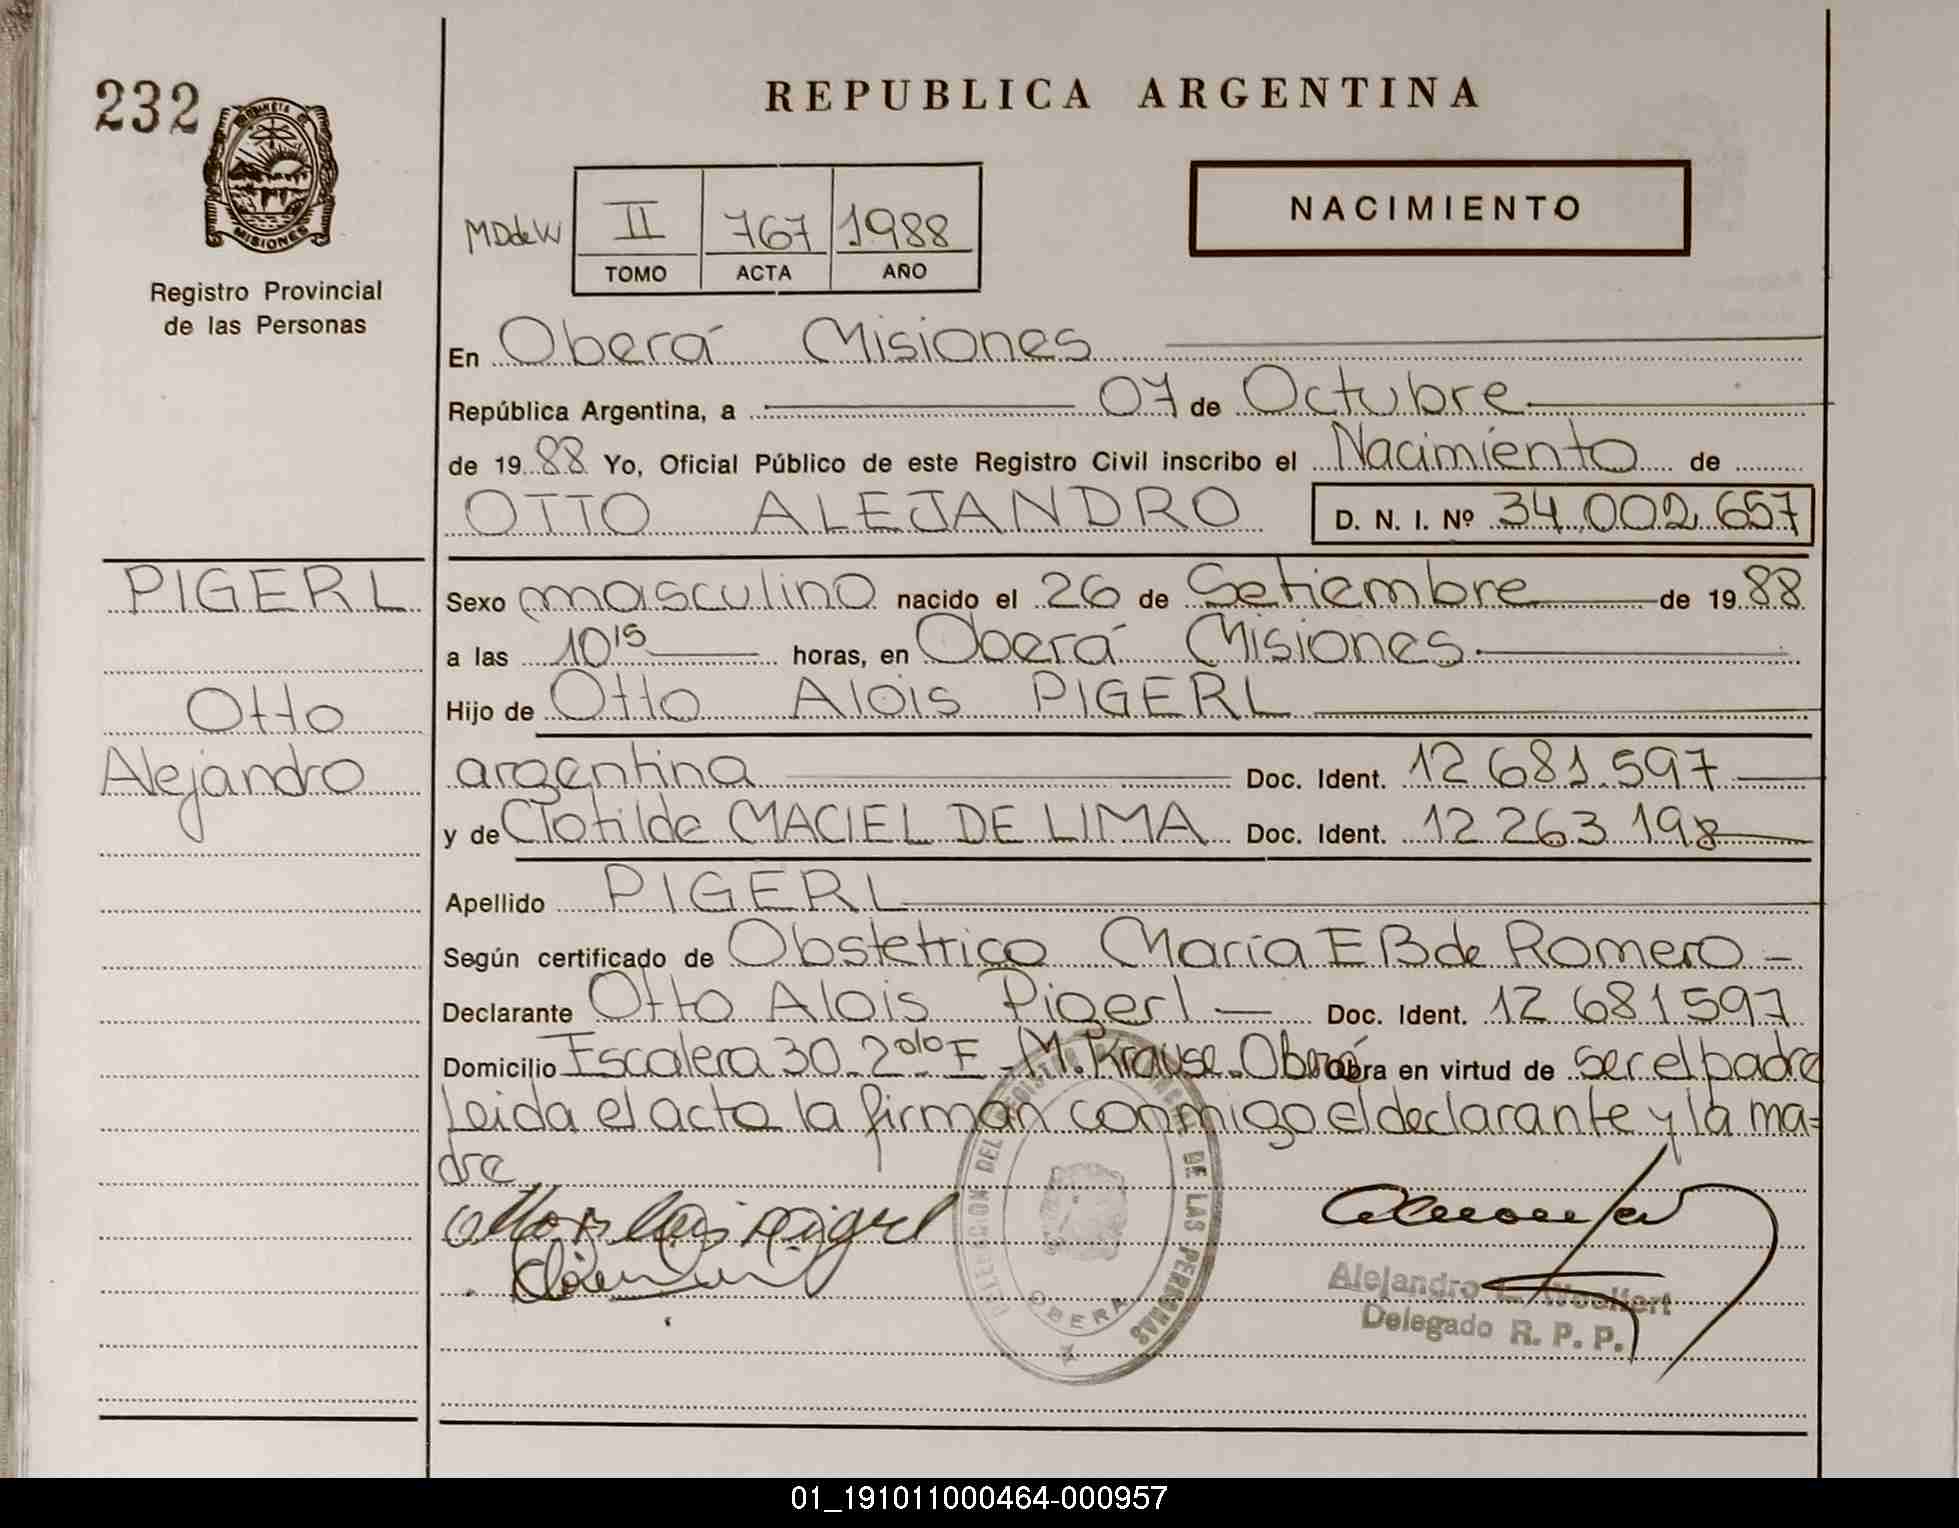 232
REPUBLICA ARGENTINA
MISIONES
Registro Provincial
de las Personas
MDdeW
II 767 1988
TOMO ACTA AÑO
NACIMIENTO
En Oberá Misiones
República Argentina, a 07 de Octubre
de 1988 Yo, Oficial Público de este Registro Civil inscribo el Nacimiento de
OTTO ALEJANDRO D. N. I. Nº 34.002.657
PIGERL
Otto
Alejandro
Sexo masculino nacido el 26 de Setiembre de 1988
a las 10 15 horas, en Oberá Misiones
Hijo de Otto Alois PIGERL
argentina Doc. Ident. 12.681.597
y de Clotilde MACIEL DE LIMA Doc. Ident. 12.263.198
Apellido PIGERL
Según certificado de Obstetrico María E B de Romero -
Declarante Otto Alois Pigerl - Doc. Ident. 12.681.597
Domicilio Escalera 30. 2º F - M. Krause. Oberá obra en virtud de ser el padre
Leida el acta la firman conmigo el declarante y la ma-
dre
DELEGACION DEL REGISTRO DE LAS PERSONAS
OBERA
Alejandro Woelfert
Delegado R. P. P.
01_191011000464-000957